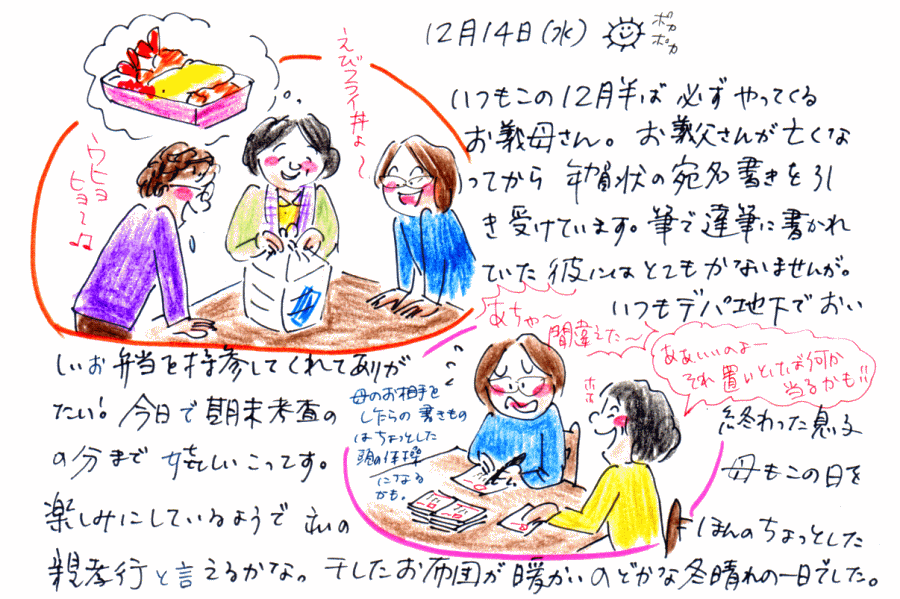 12月14日(水)
ポカ
ポカ
えびフライ丼よ〜
ウヒョ
ヒョ〜♫
いつもこの12月半ば必ずやってくる
お義母さん。お義父さんが亡くな
ってから年賀状の宛名書きを引
き受けています。筆で達筆に書かれ
ていた彼にはとてもかないませんが。
いつもデパ地下でおい
しいお弁当を持参してくれてありが
たい!今日で期末考査の
終わった息子
の分まで嬉しいこってす。
母もこの日を
楽しみにしているようで
ほんのちょっとした
親孝行と言えるかな。干したお布団が暖かいのどかな冬晴れの一日でした。
あちゃ〜
間違えた〜
ああいいのよー
それ置いといたら何か
当るかも!!
母のお相手を
しながらの書きもの
はちょっとした
頭の体操
になる
かも。